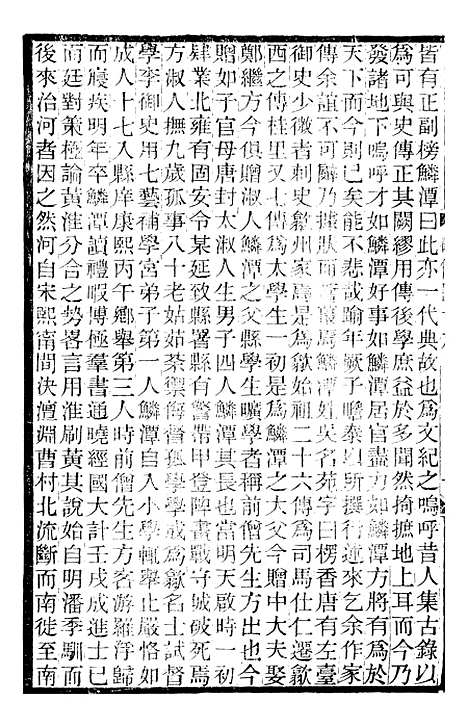 皆有正副榜鱗潭曰此亦一代典故也為文紀之嗚呼昔人集古錄以
為可與史傳正其闕繆用傳後學庶益於多聞然掎摭地上耳而今乃
發諸地下嗚呼才如鱗潭好事如鱗潭居官盡力如鱗潭方將有為於
天下而今則已矣能不悲哉越明年厥子瞻泰以所撰行述來乞余作家
傳余誼不可乃據狀而著焉鱗潭姓吳名苑字曰楞香唐有左臺
御史少微者刺史歙州家焉是為歙始祖二十六傳為司馬仕仁遷歙
西之傅桂里又七傳為太學生一初是於鱗潭之大父今贈中大夫娶
鄭繼方今俱贈淑人鱗潭之父縣學生曠學者稱前僧先生方出也今
贈如子官母唐封太淑人生男子四人鱗潭其長也當明天啟時前僧
肄業北雍有固安令某延致縣署縣有警帶甲登陴書戰守城破死焉
方淑人撫九歲孤事八十老姑茹荼禦侮督孤學學成為歙名士試督
學李御史用七藝補學宮弟子第一人鱗潭自入小學輒舉止嚴恪如
成人十七入縣庠康熙丙午鄉舉第三人時前僧先生方客游羅浮已
而寢疾明年卒鱗潭讀禮暇博極羣書通曉經國大計壬戌成進士已
而廷對策極論黃淮分合之勢畧言用淮刷黃其說始自明潘季馴而
後來治河者因之然河自宋熙甯間決澶淵曹村北流斷而南徙至南